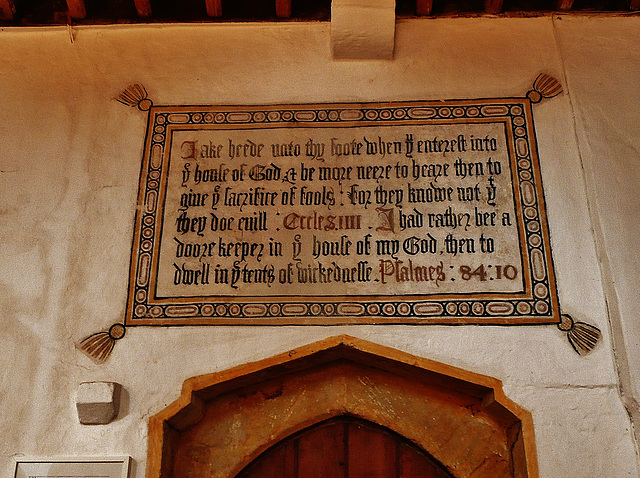 Take heede unto thy foote when yͤ enterest into
yͤ house of God, & be more neere to heare then to
giue yͤ sacrifice of fools : For they knowe not yͭ
they doe euill : Eccles. IIII . I had rather bee a
doore keeper in yͤ house of my God, then to
dwell in yͤ tents of wickednesse . Psalmes : 84 : 10